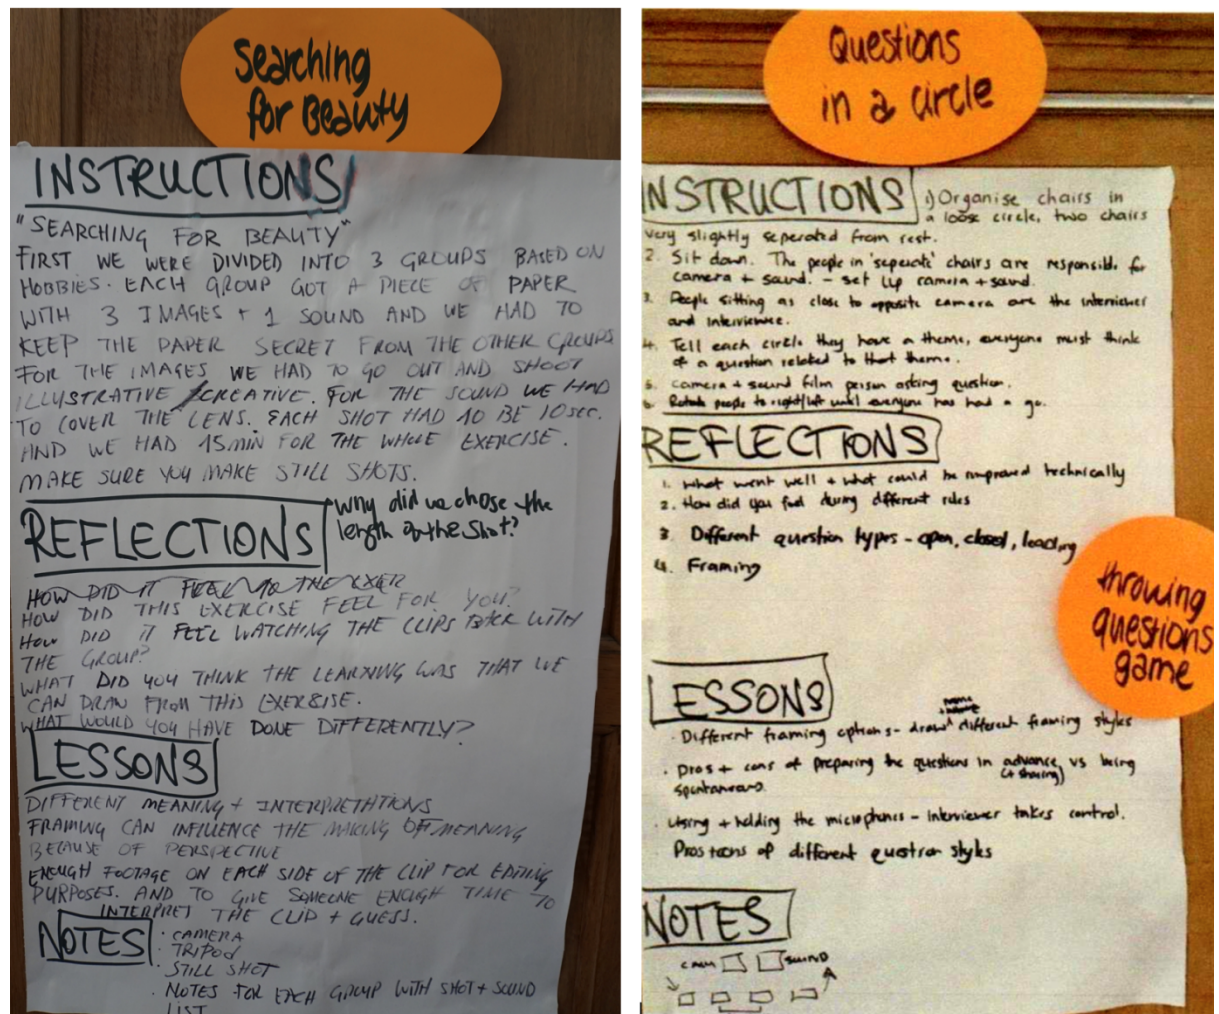 Searching
for Beauty
INSTRUCTIONS
"SEARCHING FOR BEAUTY"
FIRST WE WERE DIVIDED INTO 3 GROUPS BASED ON
HOBBIES. EACH GROUP GOT A PIECE OF PAPER
WITH 3 IMAGES + 1 SOUND AND WE HAD TO
KEEP THE PAPER SECRET FROM THE OTHER GROUPS
FOR THE IMAGES WE HAD TO GO OUT AND SHOOT
ILLUSTRATIVE / CREATIVE. FOR THE SOUND WE HAD
TO COVER THE LENS. EACH SHOT HAD TO BE 10SEC.
AND WE HAD 15MIN FOR THE WHOLE EXERCISE.
MAKE SURE YOU MAKE STILL SHOTS.
REFLECTIONS
Why did we chose the
length of the shot?
HOW DID IT FEEL TO THE EXER
HOW DID THIS EXERCISE FEEL FOR YOU?
HOW DID IT FEEL WATCHING THE CLIPS BACK WITH
THE GROUP?
WHAT DID YOU THINK THE LEARNING WAS THAT WE
CAN DRAW FROM THIS EXERSISE.
WHAT WOULD YOU HAVE DONE DIFFERENTLY?
LESSONS
DIFFERENT MEANING + INTERPRETATIONS
FRAMING CAN INFLUENCE THE MAKING OF MEANING
BECAUSE OF PERSPECTIVE
ENOUGH FOOTAGE ON EACH SIDE OF THE CLIP FOR EDITING
PURPOSES. AND TO GIVE SOMEONE ENOUGH TIME TO
INTERPRET THE CLIP + GUESS.
NOTES
· CAMERA
· TRIPOD
· STILL SHOT
· NOTES FOR EACH GROUP WITH SHOT + SOUND
LIST
Questions
in a circle
INSTRUCTIONS
1) Organise chairs in
a loose circle, two chairs
very slightly seperated from rest.
2. Sit down. The people in 'seperate' chairs are responsible for
camera + sound. - set up camera + sound.
3. People sitting as close to opposite camera are the interviewer
and interviewee.
4. Tell each circle they have a theme, everyone must think
of a question related to that theme.
5. Camera + sound film person asking question.
6. Rotate people to right/left until everyone has had a go.
REFLECTIONS
1. What went well + what could be improved technically
2. How did you feel during different roles
3. Different question types - open, closed, leading
4. Framing
throwing
questions
game
LESSONS
· Different framing options - draw different framing styles
· Pros + cons of preparing the questions in advance vs being
(+ sharing)
spontaneous.
· Using + holding the microphones - interviewer takes control.
Pros + cons of different question styles
NOTES
CAM SOUND